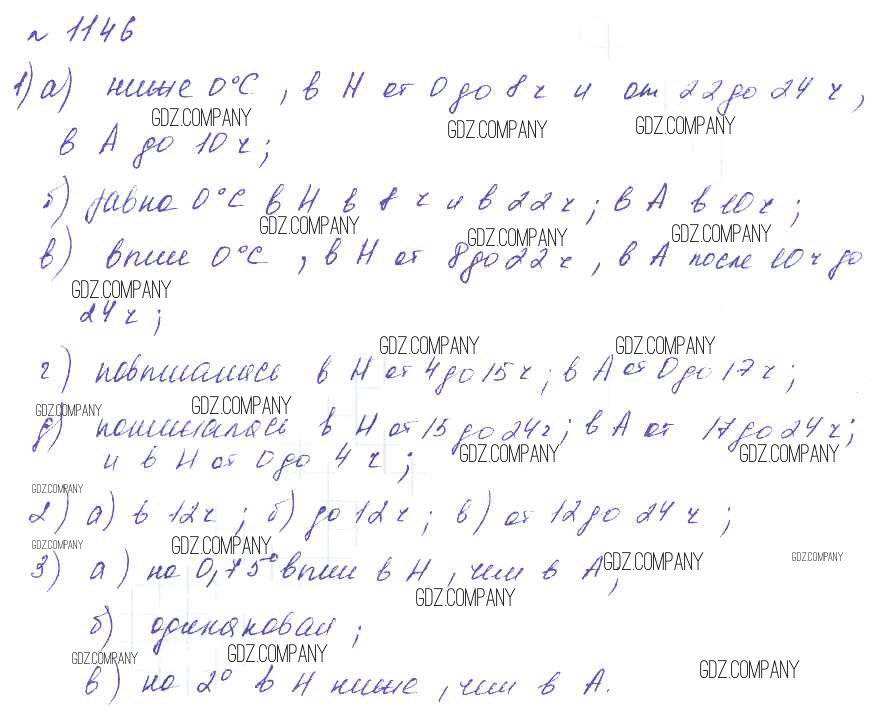 № 1146
1) а) ниже 0°С, в Н от 0 до 8 ч и от 22 до 24 ч,
GDZ.COMPANY GDZ.COMPANY GDZ.COMPANY
в А до 10 ч;
б) равна 0°С в Н в 8 ч и в 22 ч; в А в 10 ч;
GDZ.COMPANY GDZ.COMPANY GDZ.COMPANY
в) выше 0°С, в Н от 8 до 22 ч, в А после 10 ч до
GDZ.COMPANY
24 ч;
GDZ.COMPANY GDZ.COMPANY
г) повышалась в Н от 4 до 15 ч; в А от 0 до 17 ч;
GDZ.COMPANY GDZ.COMPANY
д) понижалась в Н от 15 до 24 ч; в А от 17 до 24 ч;
GDZ.COMPANY GDZ.COMPANY
и в Н от 0 до 4 ч;
GDZ.COMPANY
2) а) в 12 ч; б) до 12 ч; в) от 12 до 24 ч;
GDZ.COMPANY GDZ.COMPANY GDZ.COMPANY GDZ.COMPANY
3) а) на 0,75° выше в Н, чем в А;
GDZ.COMPANY
б) одинаковая;
GDZ.COMPANY GDZ.COMPANY GDZ.COMPANY
в) на 2° в Н ниже, чем в А.